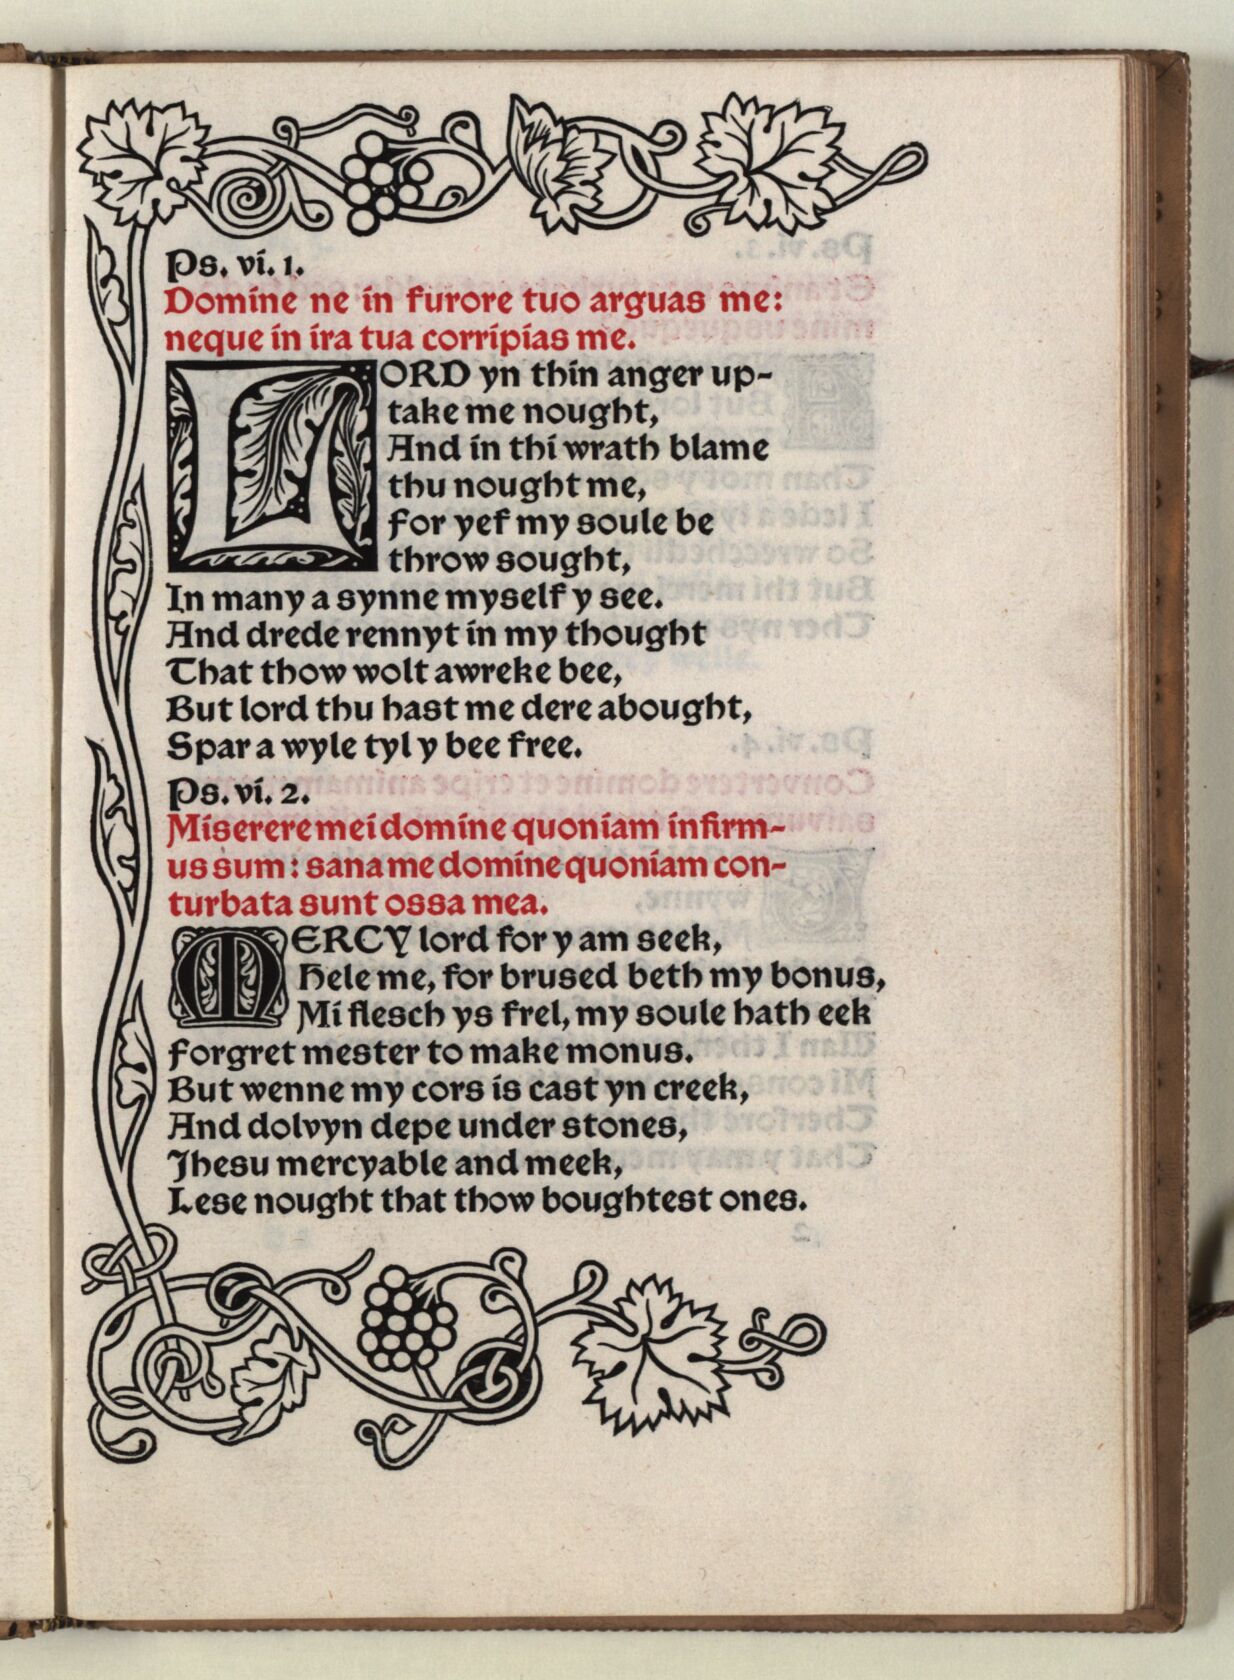 Ps. vi. 1.
Domine ne in furore tuo arguas me:
neque in ira tua corripias me.
LORD yn thin anger up-
take me nought,
And in thi wrath blame
thu nought me,
For yef my soule be
throw sought,
In many a synne myself y see.
And drede rennyt in my thought
That thow wolt awreke bee,
But lord thu hast me dere abought,
Spar a wyle tyl y bee free.
Ps. vi. 2.
Miserere mei domine quoniam infirm-
us sum: sana me domine quoniam con-
turbata sunt ossa mea.
MERCY lord for y am seek,
Hele me, for brused beth my bonus,
Mi flesch ys frel, my soule hath eek
Forgret mester to make monus.
But wenne my cors is cast yn creek,
And dolvyn depe under stones,
Jhesu mercyable and meek,
Lese nought that thow boughtest ones.